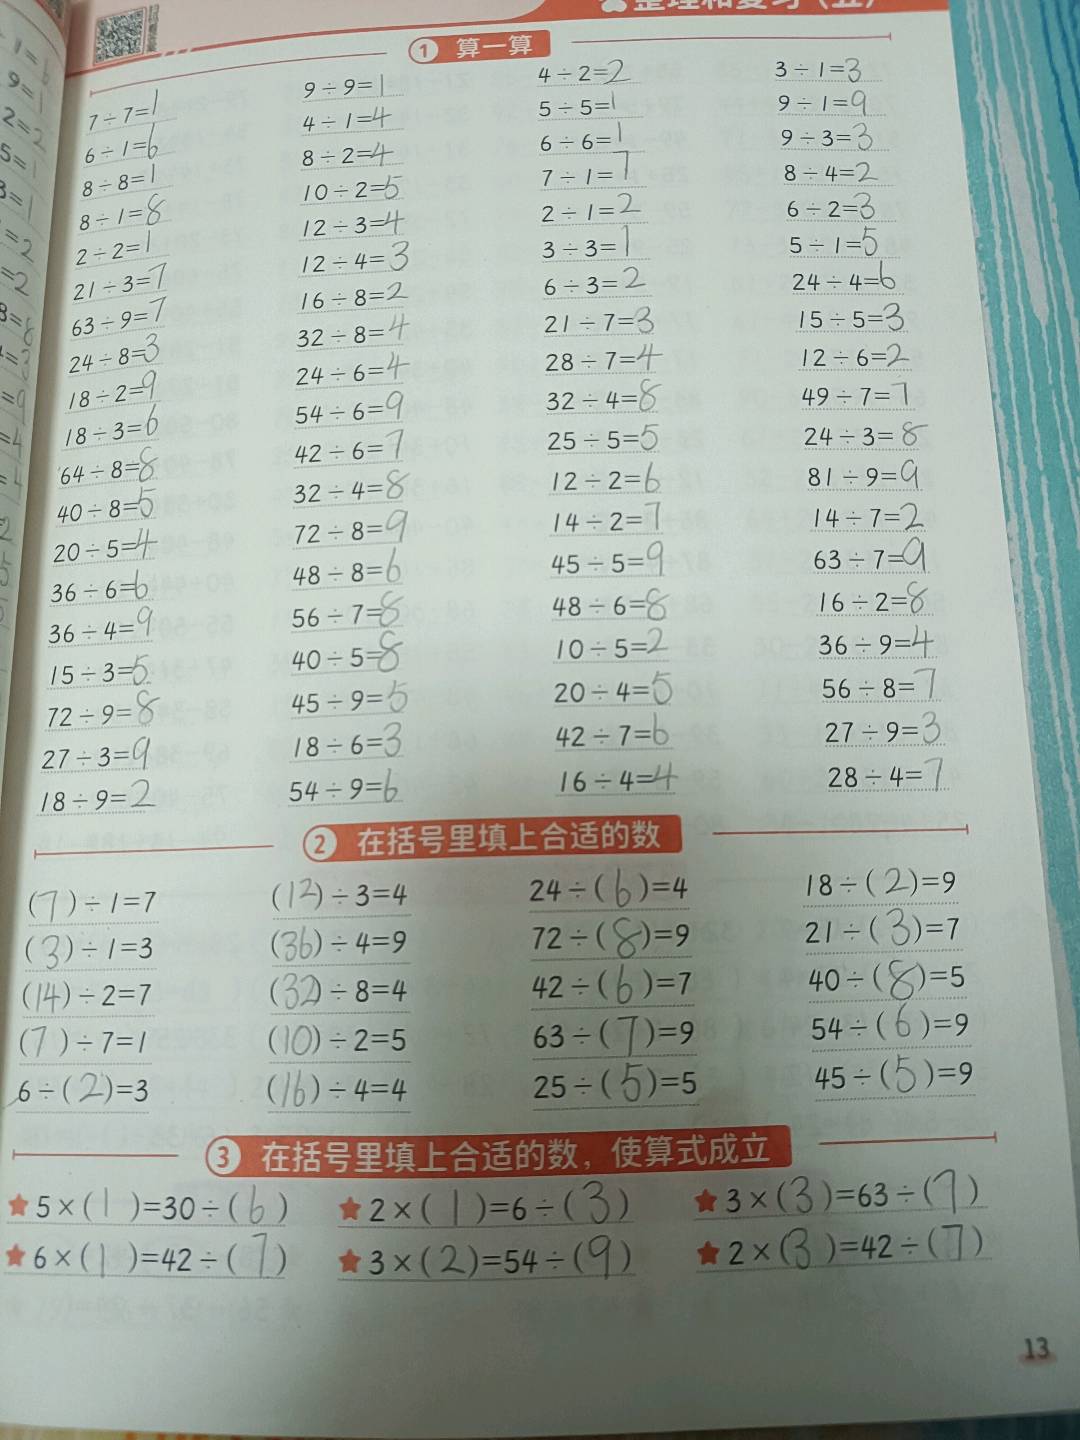 整理和复习（五）
① 算一算
7÷7=1
6÷1=6
8÷8=1
8÷1=8
2÷2=1
21÷3=7
63÷9=7
24÷8=3
18÷2=9
18÷3=6
64÷8=8
40÷8=5
20÷5=4
36÷6=6
36÷4=9
15÷3=5
72÷9=8
27÷3=9
18÷9=2
9÷9=1
4÷1=4
8÷2=4
10÷2=5
12÷3=4
12÷4=3
16÷8=2
32÷8=4
24÷6=4
54÷6=9
42÷6=7
32÷4=8
72÷8=9
48÷8=6
56÷7=8
40÷5=8
45÷9=5
18÷6=3
54÷9=6
4÷2=2
5÷5=1
6÷6=1
7÷1=7
2÷1=2
3÷3=1
6÷3=2
21÷7=3
28÷7=4
32÷4=8
25÷5=5
12÷2=6
14÷2=7
45÷5=9
48÷6=8
10÷5=2
20÷4=5
42÷7=6
16÷4=4
3÷1=3
9÷1=9
9÷3=3
8÷4=2
6÷2=3
5÷1=5
24÷4=6
15÷5=3
12÷6=2
49÷7=7
24÷3=8
81÷9=9
14÷7=2
63÷7=9
16÷2=8
36÷9=4
56÷8=7
27÷9=3
28÷4=7
② 在括号里填上合适的数
(7)÷1=7
(3)÷1=3
(14)÷2=7
(7)÷7=1
6÷(2)=3
(12)÷3=4
(36)÷4=9
(32)÷8=4
(10)÷2=5
(16)÷4=4
24÷(6)=4
72÷(8)=9
42÷(6)=7
63÷(7)=9
25÷(5)=5
18÷(2)=9
21÷(3)=7
40÷(8)=5
54÷(6)=9
45÷(5)=9
③ 在括号里填上合适的数，使算式成立
★5×(1)=30÷(6) ★2×(1)=6÷(3) ★3×(3)=63÷(7)
★6×(1)=42÷(7) ★3×(2)=54÷(9) ★2×(3)=42÷(7)
13